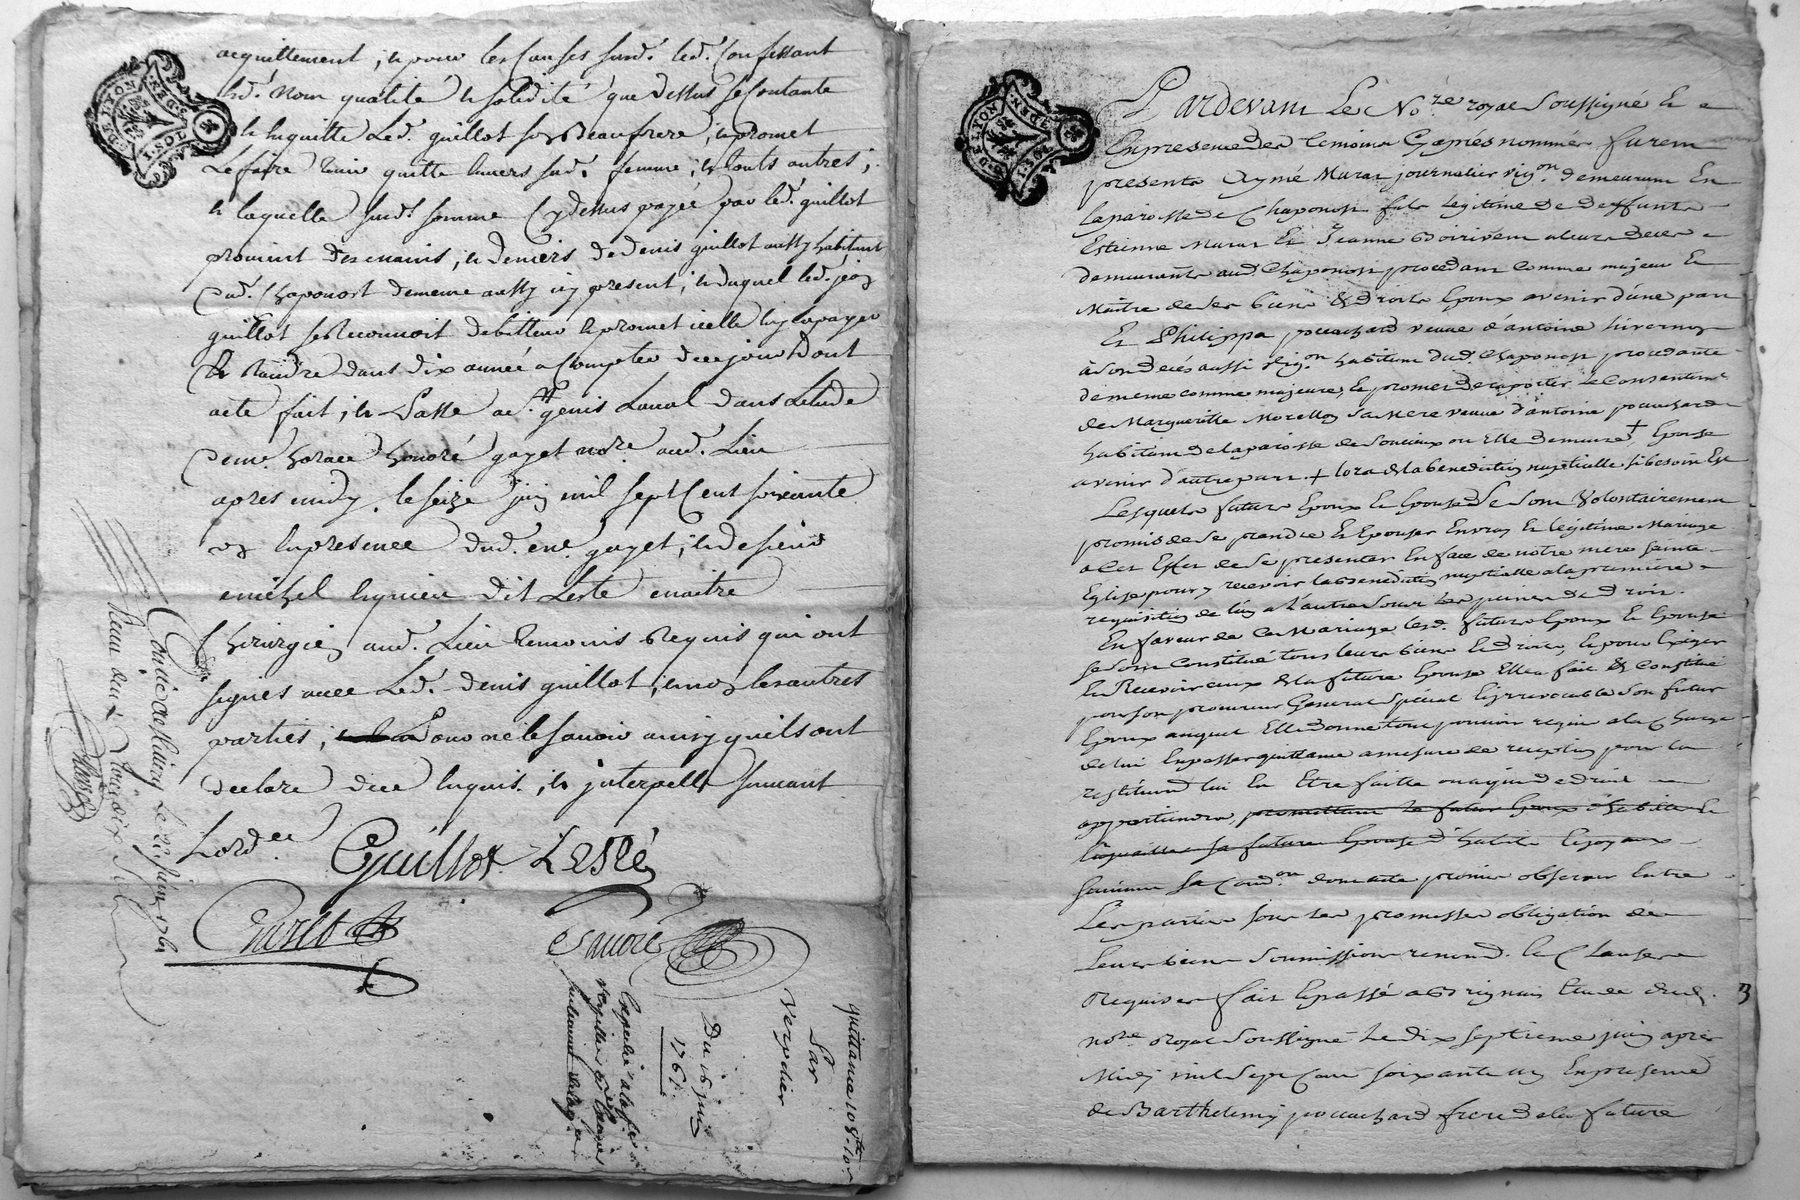 acquittement, et pour les causes susd. led. Confessant
aud. Nom qualité et solidité que dessus se Contante
et en quitte Led. guillot son Beaufrere, et promet
Le faire tenir quitte envers sad. femme, et touts autres;
et laquelle susd. somme Cy dessus payée par led. guillot
provient des mains, et deniers de denis guillot aussy habitant
aud. Chaponost demeure aussy icy present, et duquel led. jean
guillot se Reconnoit debitteur et promet icelle luy payer
et Randre dans dix année a Compter de ce jour Dont
acte fait, et Passé a St. genis Laval dans Letude
de me. horace honoré gayet nore. aud. Lieu
apres midy, le seize juin mil sept Cent soixante
un En presence dud. me. gayet, et de sieur
michel dit Lesté maitre
Chirurgien aud. Lieu temoins Requis qui ont
signés avec Led. denis guillot, et non les autres
parties, pour ne le savoir ainsy quils ont
declaré de ce enquis, et interpellé suivant
Lord.ce
Guillot Lesté
Gayet
Conterollé a St genis Laval Le 22 juin 1761
Reçu
quittance 105lt. 10s
Par
Verdier
Du 16 juin
1761
DE LYON
GEN.
13.SOLS.
Pardevant Le No.re royal Soussigné Et
En presence des temoins Cy après nommés furent
presents Aymé Murat journalier vig.on demeurant En
La paroisse de Chaponost fils legitime de deffunts
Estienne Murat Et Jeanne Boiriven a leurs deces
demeurants aud. Chaponost procedant Comme majeur Et
Maître de ses biens & droits Epoux avenir d'une part
Et Philippa pouchard veuve d'antoine hivernon
à son decés aussi vig.on habitant dud. Chaponost procedante
de meme comme majeure, Et promet de raporter Le Consentem.t
de Marguerite Morellon Sa Mere veuve d'antoine pouchard
habitant de la paroisse de Soucieux ou Elle demeure + Epouse
avenir d'autre part. + lors de la benediction nuptialle si besoin Est
Lesquels futurs Epoux Et Epouse Se sont Volontairement
promis de Se prendre Et Epouser En vray Et legitime Mariage
a Cet Effet de Se presenter En face de notre mere Sainte
Eglise pour y recevoir la benediction nuptialle a la premiere
requisition de l'un a l'autre Sous les peines de droit.
En faveur de Ce Mariage lesd. futurs Epoux Et Epouse
Se sont Constitué tous leurs biens Et droits, Et pour Exiger
Et Recevoir ceux de la future Epouse Elle a fait & Constitué
pour son procureur General Special Et irrevocable Son futur
Epoux auquel Elle donne tout pouvoir requis a la Charge
de lui En passer quittance a mesure de reception pour la
restitution lui En Etre faitte ou a qui de droit
appartiendra, promettant le futur Epoux d'habiller Et
Enjoailler sa future Epouse d'habits Et joyaux
Suivant Sa Cond.on dont acte promis observer Entre
Les parties Sous les promesses obligation de
Leurs biens Soumissions renonc. Et Clauses
Requises fait Et passé a Brignais Etude dud.
nore Royal Soussigné Le dix septieme juin après
Midy mil Sept Cent Soixante un En presence
de Barthelemy pouchard frere de la future